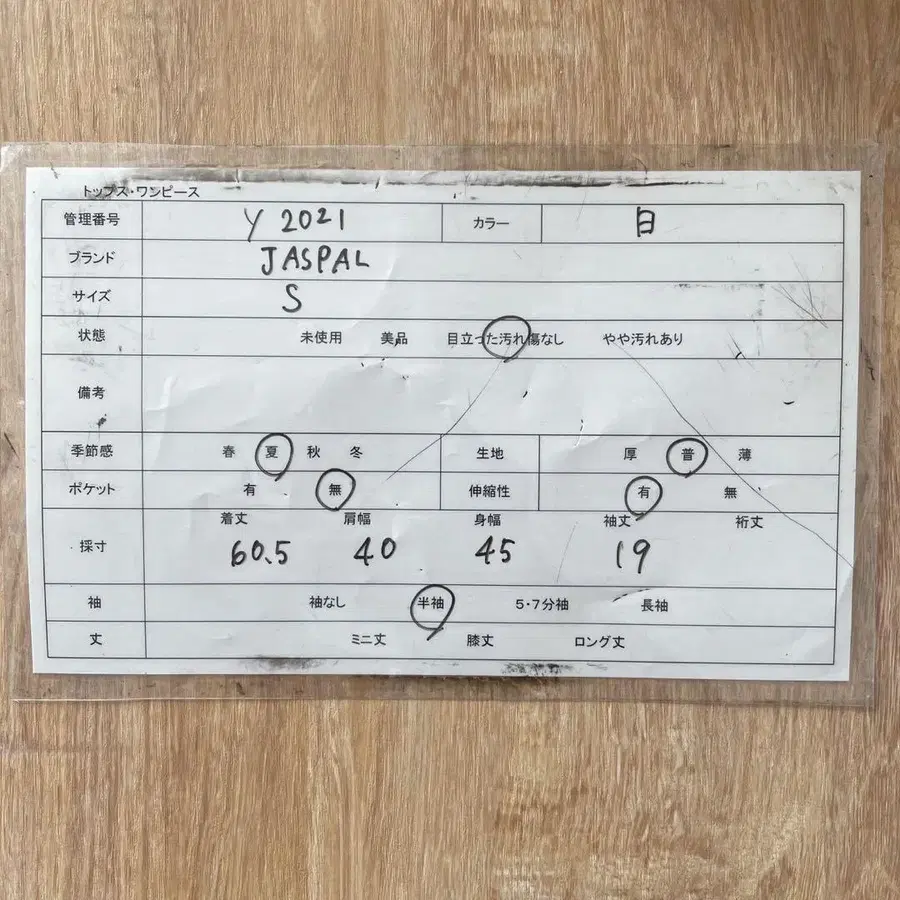 トップス・ワンピース
管理番号 Y 2021 カラー 白
ブランド JASPAL
サイズ S
状態 未使用 美品 目立った汚れ傷なし やや汚れあり
備考
季節感 春 夏 秋 冬 生地 厚 普 薄
ポケット 有 無 伸縮性 有 無
採寸 着丈 肩幅 身幅 袖丈 裄丈
60.5 40 45 19
袖 袖なし 半袖 5・7分袖 長袖
丈 ミニ丈 膝丈 ロング丈